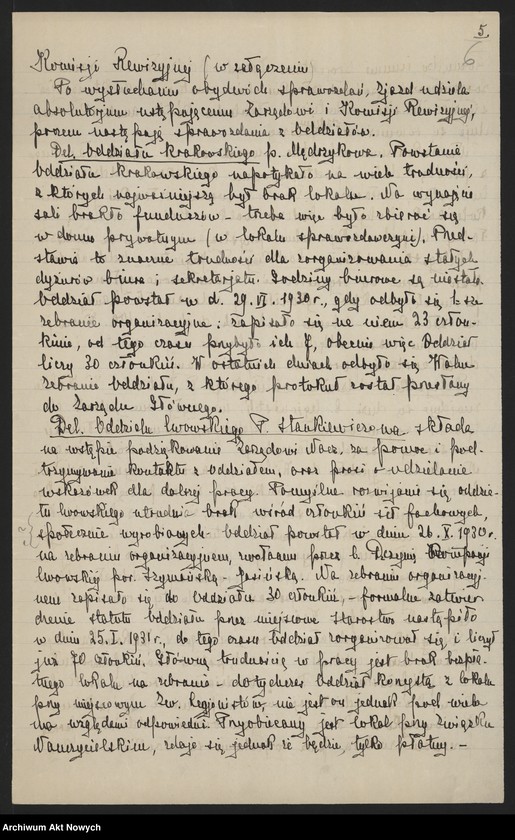 5.
6
Komisji Rewizyjnej (w załączeniu)
Po wysłuchaniu obydwóch sprawozdań, Zjazd udziela
absolutorjum ustępującemu Zarządowi i Komisji Rewizyjnej,
poczem następują sprawozdania z Oddziałów.
Del. Oddziału krakowskiego p. Mędrzykowa. Powstanie
Oddziału krakowskiego napotykało na wiele trudności,
z których najważniejszą był brak lokalu. Na wynajęcie
sali brakło funduszów – trzeba więc było zbierać się
w domu prywatnym (w lokalu sprawozdawczyni). Przed-
stawia to znaczne trudności dla zorganizowania stałych
dyżurów biura i sekretarjatu. Godziny biurowe są niestałe.
Oddział powstał w d. 29.VI.1930 r., gdy odbyło się 1-sze
zebranie organizacyjne; zapisało się na niem 23 człon-
kinie, od tego czasu przybyło ich 7, obecnie więc Oddział
liczy 30 członkiń. W ostatnich dniach odbyło się Walne
Zebranie Oddziału, z którego protokuł został przesłany
do Zarządu Głównego.
Del. Oddziału lwowskiego P. Stankiewiczowa składa
na wstępie podziękowanie Zarządowi Nacz. za pomoc i pod-
trzymywanie kontaktu z Oddziałem, oraz prosi o udzielanie
wskazówek dla dalszej pracy. Pomyślne rozwijanie się Oddzia-
łu lwowskiego utrudnia brak wśród członkiń sił fachowych,
społecznie wyrobionych. Oddział powstał w dniu 26.X.1930 r.
na zebraniu organizacyjnem, zwołanem przez b.
lwowskiej por. Szymańską-Jasińską. Na zebraniu organizacyj-
nem zapisało się do Oddziału 30 członkiń, – formalne zatwier-
dzenie statutu Oddziału przez miejscowe starostwo nastąpiło
w dniu 25.I.1931 r., do tego czasu Oddział zorganizował się i liczył
już 70 członkiń. Główną trudnością w pracy jest brak bezpła-
tnego lokalu na zebrania – dotychczas Oddział korzysta z lokalu
przy miejscowym Zw. Legjonistów, nie jest on jednak pod wielu
względami odpowiedni. Przyobiecany jest lokal przy Związku
Nauczycielskim, zdaje się jednak że będzie, tylko płatny. –
Archiwum Akt Nowych